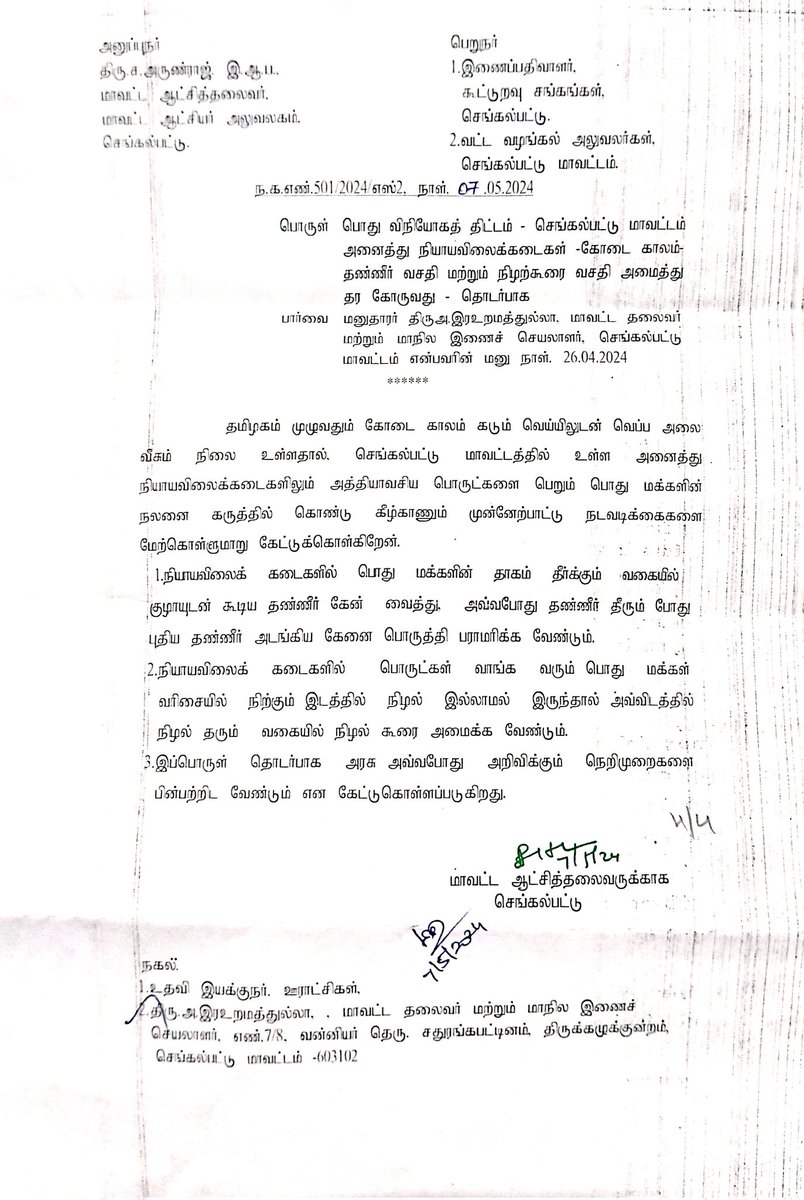 அனுப்புநர்
திரு.ச.அருண்ராஜ், இ.ஆ.ப.,
மாவட்ட ஆட்சித்தலைவர்,
மாவட்ட ஆட்சியர் அலுவலகம்,
செங்கல்பட்டு.
பெறுநர்
1.இணைப்பதிவாளர்,
கூட்டுறவு சங்கங்கள்,
செங்கல்பட்டு.
2.வட்ட வழங்கல் அலுவலர்கள்,
செங்கல்பட்டு மாவட்டம்.
ந.க.எண்.501/2024/எஸ்2, நாள். 07.05.2024
பொருள் பொது விநியோகத் திட்டம் - செங்கல்பட்டு மாவட்டம்
அனைத்து நியாயவிலைக்கடைகள் -கோடை காலம்-
தண்ணீர் வசதி மற்றும் நிழற்கூரை வசதி அமைத்து
தர கோருவது - தொடர்பாக
பார்வை மனுதாரர் திருஅ.இரஉறமத்துல்லா, மாவட்ட தலைவர்
மற்றும் மாநில இணைச் செயலாளர், செங்கல்பட்டு
மாவட்டம் என்பவரின் மனு நாள். 26.04.2024
******
தமிழகம் முழுவதும் கோடை காலம் கடும் வெய்யிலுடன் வெப்ப அலை
வீசும் நிலை உள்ளதால், செங்கல்பட்டு மாவட்டத்தில் உள்ள அனைத்து
நியாயவிலைக்கடைகளிலும் அத்தியாவசிய பொருட்களை பெறும் பொது மக்களின்
நலனை கருத்தில் கொண்டு கீழ்காணும் முன்னேற்பாட்டு நடவடிக்கைகளை
மேற்கொள்ளுமாறு கேட்டுக்கொள்கிறேன்.
1.நியாயவிலைக் கடைகளில் பொது மக்களின் தாகம் தீர்க்கும் வகையில்
குழாயுடன் கூடிய தண்ணீர் கேன் வைத்து, அவ்வபோது தண்ணீர் தீரும் போது
புதிய தண்ணீர் அடங்கிய கேனை பொருத்தி பராமரிக்க வேண்டும்.
2.நியாயவிலைக் கடைகளில் பொருட்கள் வாங்க வரும் பொது மக்கள்
வரிசையில் நிற்கும் இடத்தில் நிழல் இல்லாமல் இருந்தால் அவ்விடத்தில்
நிழல் தரும் வகையில் நிழல் கூரை அமைக்க வேண்டும்.
3.இப்பொருள் தொடர்பாக அரசு அவ்வபோது அறிவிக்கும் நெறிமுறைகளை
பின்பற்றிட வேண்டும் என கேட்டுகொள்ளப்படுகிறது.
4/4
7/5/24
மாவட்ட ஆட்சித்தலைவருக்காக
செங்கல்பட்டு
7/5/2024
நகல்.
1.உதவி இயக்குநர். ஊராட்சிகள்,
2.திரு.அ.இரஉறமத்துல்லா, . மாவட்ட தலைவர் மற்றும் மாநில இணைச்
செயலாளர், எண்.7/8, வன்னியர் தெரு. சதுரங்கபட்டினம், திருக்கழுக்குன்றம்,
செங்கல்பட்டு மாவட்டம் -603102